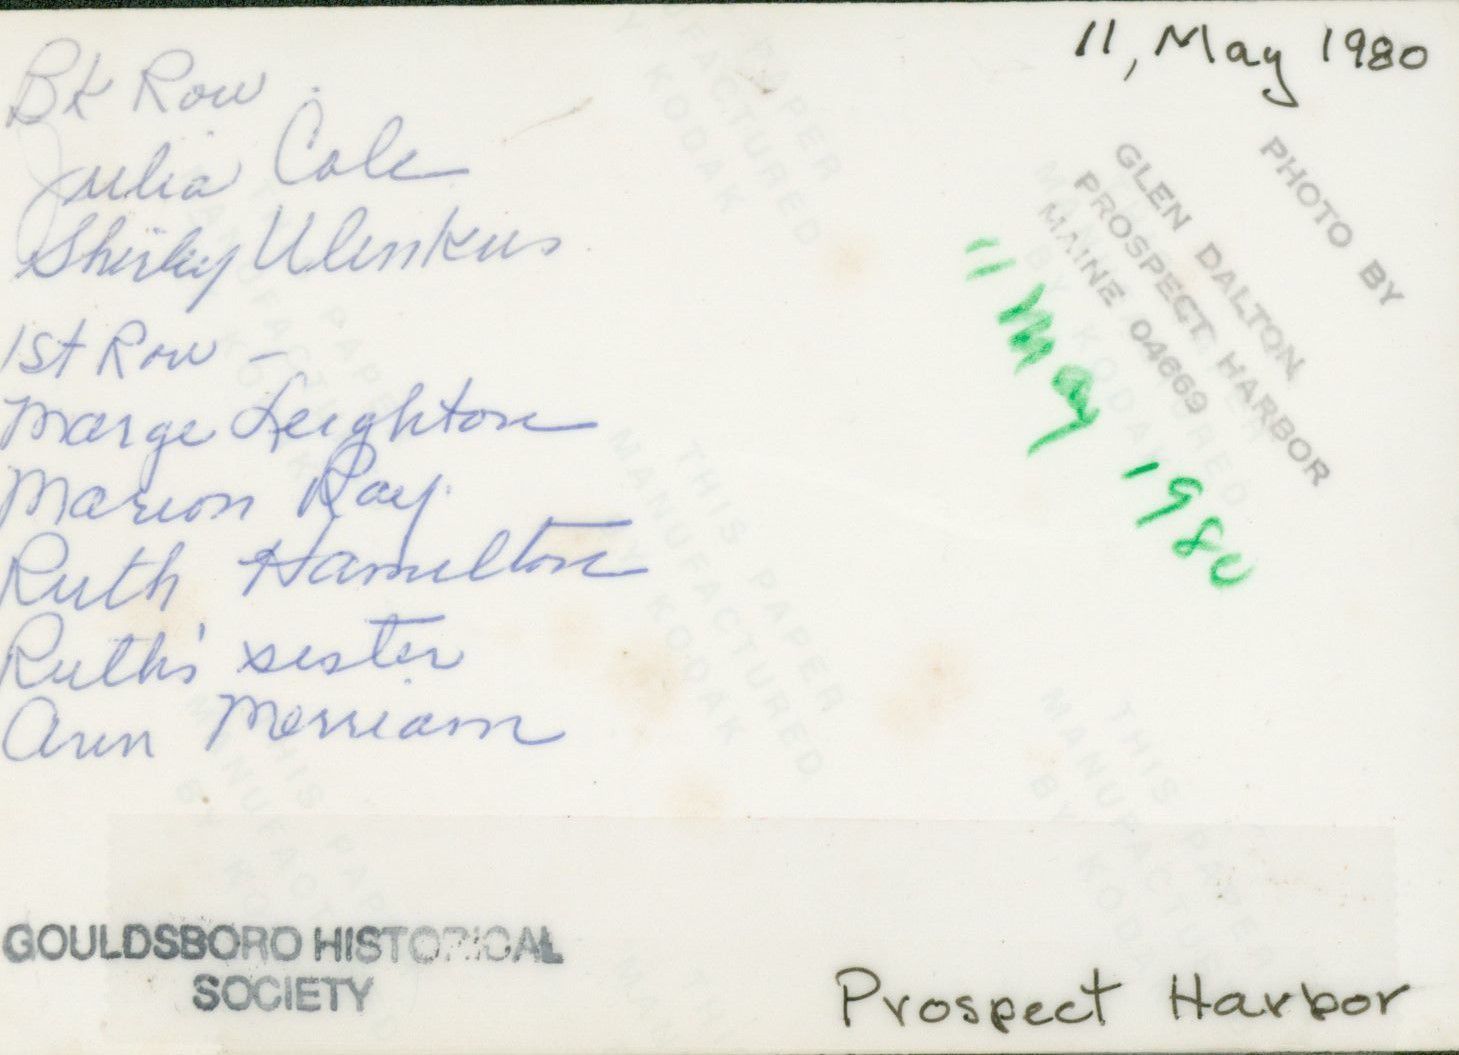 11, May 1980
Bk Row.
Julia Cole
Shirley Ulenkus
1st Row -
Marge Leighton
Marion Ray
Ruth Hamilton
Ruth's sister
Ann Merriam
PHOTO BY
GLEN DALTON
PROSPECT HARBOR
MAINE 04669
11 May 1980
THIS PAPER
MANUFACTURED
BY KODAK
GOULDSBORO HISTORICAL
SOCIETY
Prospect Harbor